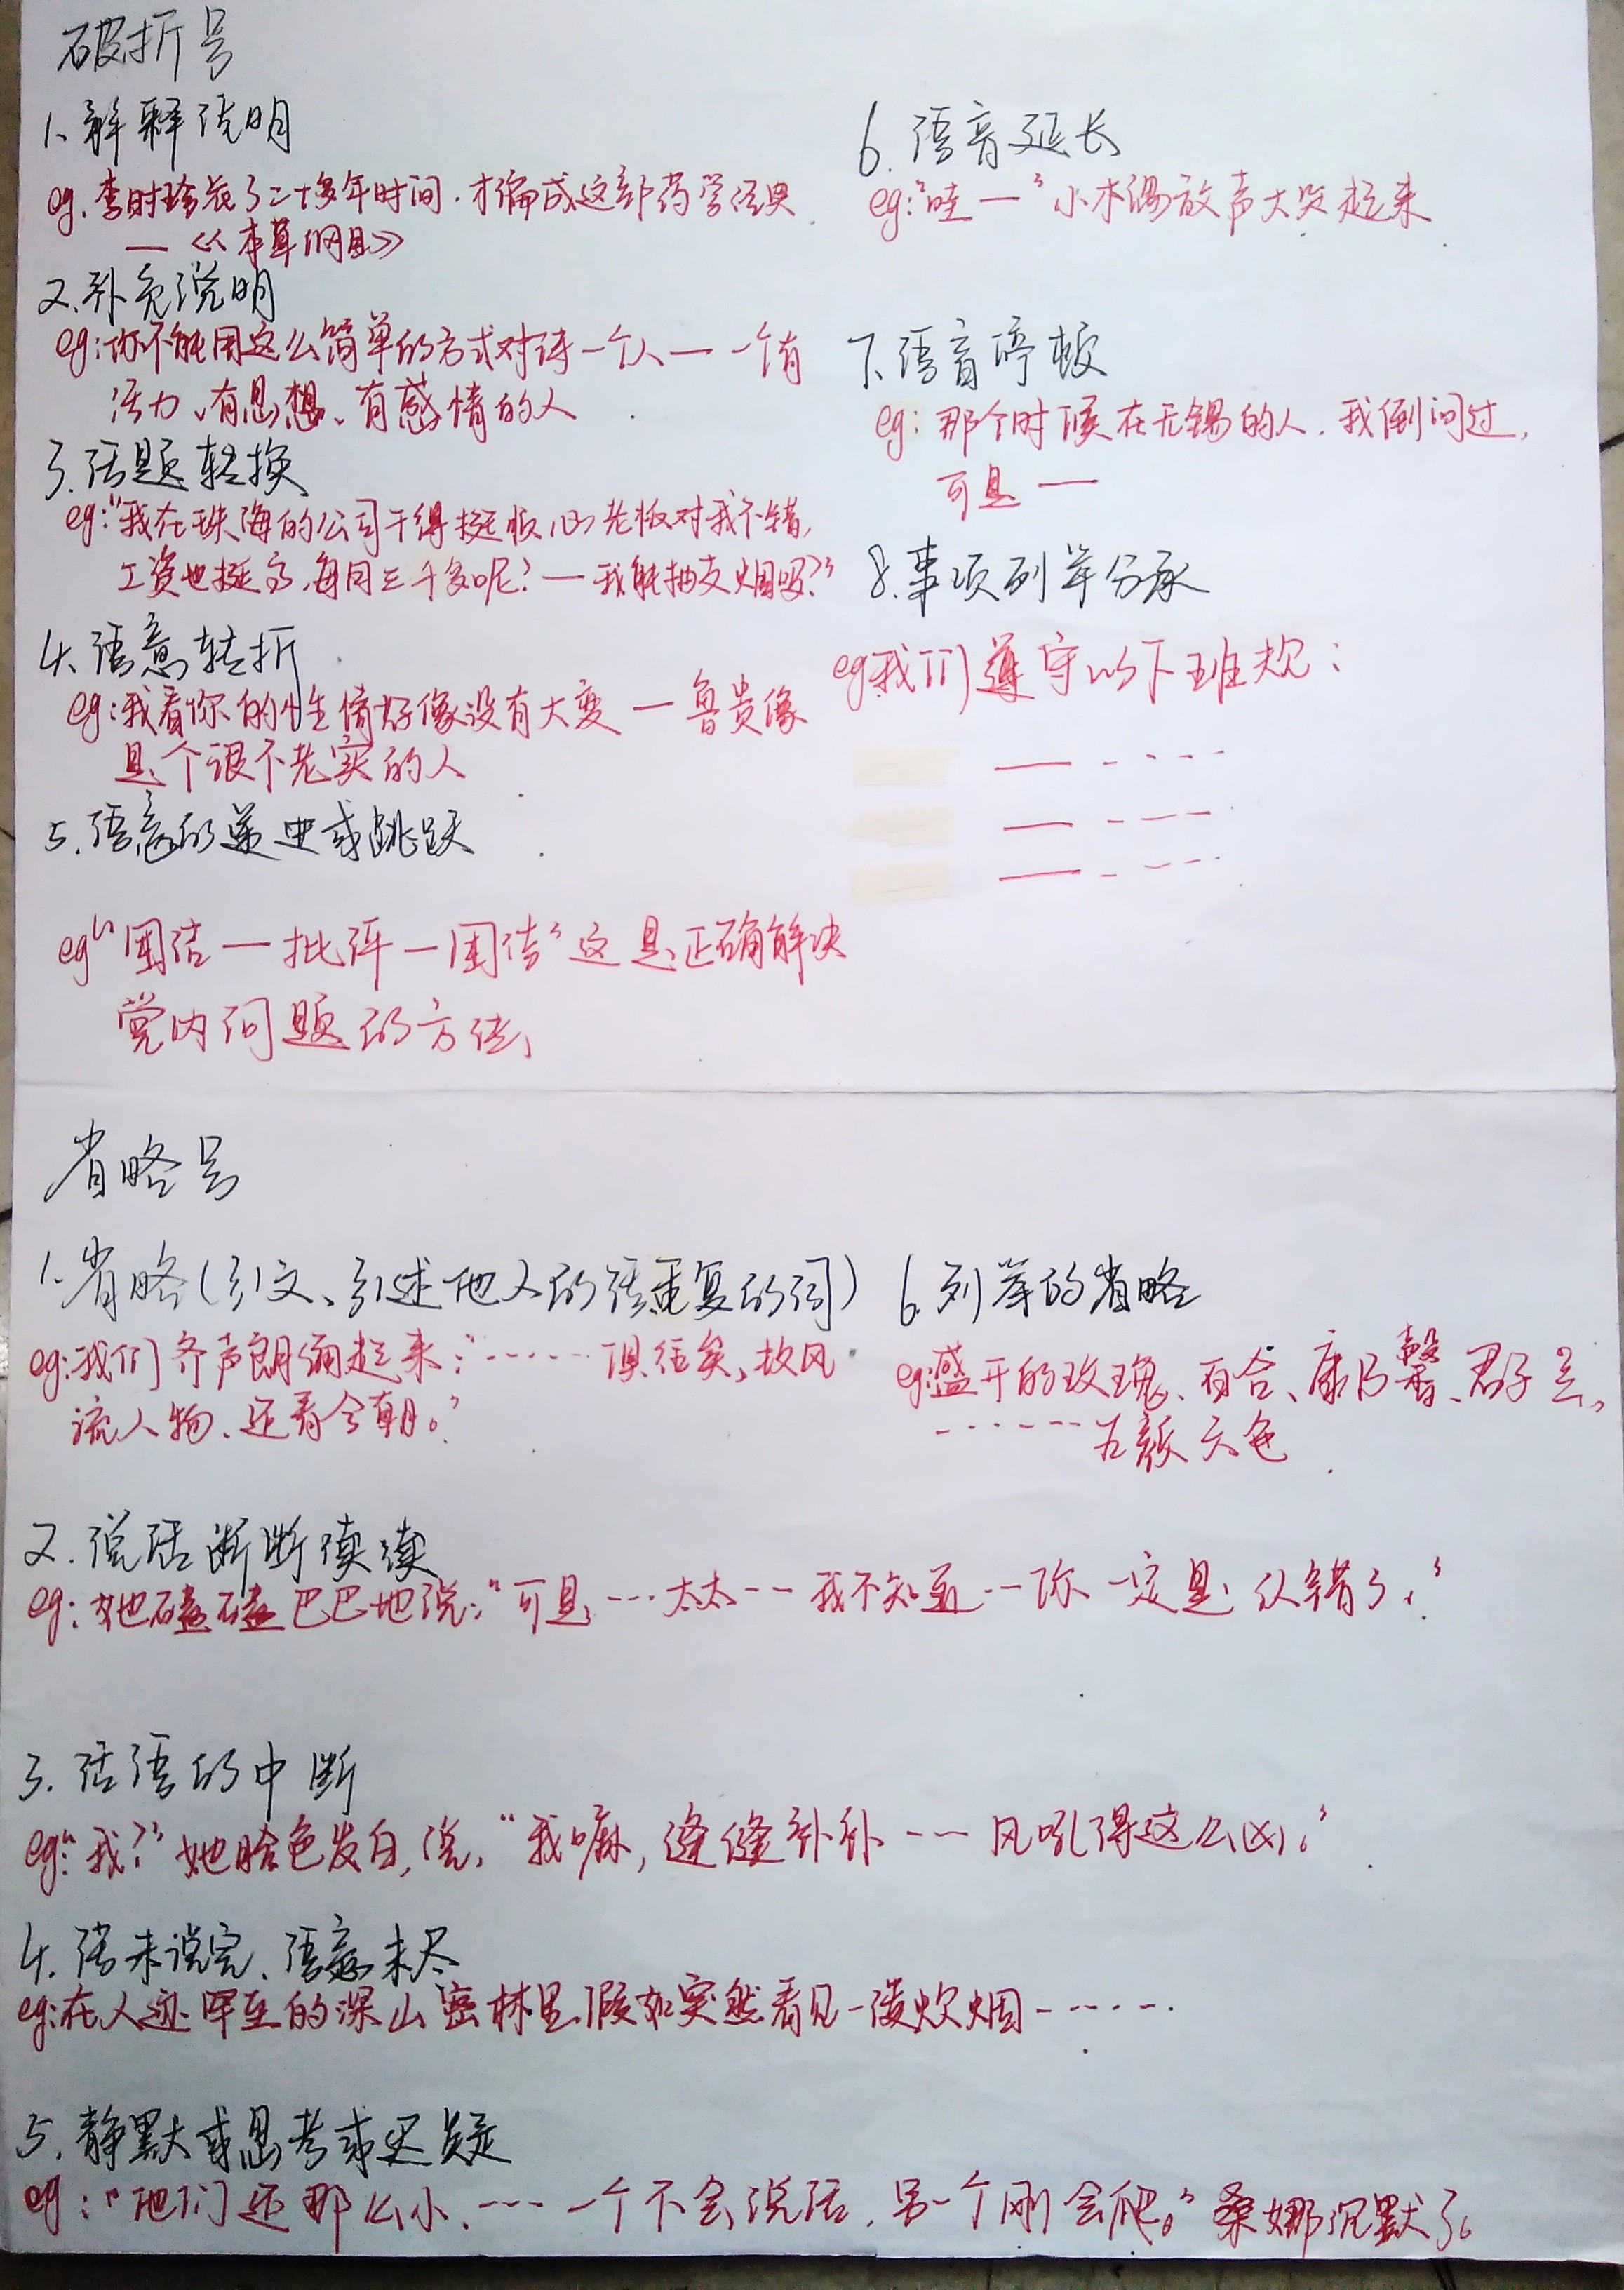 破折号
1、解释说明
eg、李时珍花了二十多年时间,才编成这部药学经典
—《本草纲目》
2、补充说明
eg:你不能用这么简单的方式对待一个人——一个有
活力、有思想、有感情的人
3、话题转换
eg:“我在珠海的公司干得挺顺心,老板对我不错,
工资也挺高,每月三千多呢?—我能抽支烟吗?”
4、语意转折
eg:我看你的性情好像没有大变—鲁贵像
是个很不老实的人
5、语意的递进或跳跃
eg“团结—批评—团结”这是正确解决
党内问题的方法、
6.语音延长
eg:“哇—”小木偶放声大哭起来
7、语音停顿
eg:那个时候在无锡的人,我倒问过,
可是—
8.事项列举分承
eg我们遵守以下班规:
— - - - -
— - - - -
— - - - -
省略号
1、省略(引文、引述他人的话重复的词)
eg:我们齐声朗诵起来:“······俱往矣,数风
流人物、还看今朝。”
6.列举的省略
eg:盛开的玫瑰、百合、康乃馨、君子兰、
······五颜六色
2.说话断断续续
eg:她磕磕巴巴地说:“可是···太太···我不知道···你一定是认错了。”
3.话语的中断
eg:“我?”她脸色发白,说,“我嘛,缝缝补补···风吼得这么凶。”
4.话未说完、语意未尽
eg:在人迹罕至的深山密林里,假如突然看见一缕炊烟······
5.静默或思考或迟疑
eg:“他们还那么小、···一个不会说话,另一个刚会爬。”桑娜沉默了。